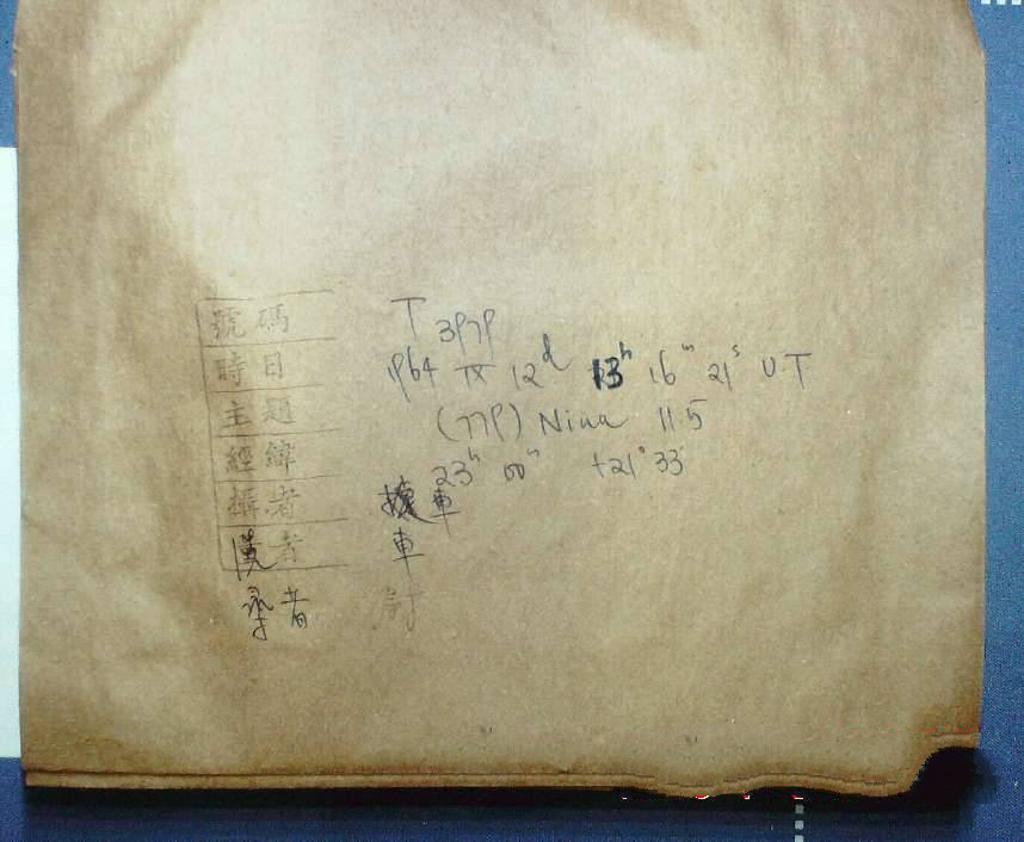 號碼 T 3979
時日 1964 IX 12ᵈ 13ʰ 16ᵐ 21ˢ U.T
主題 (779) Nina 11.5
經緯 23ʰ 00ᵐ +21° 33'
攝者 車
者 車
者